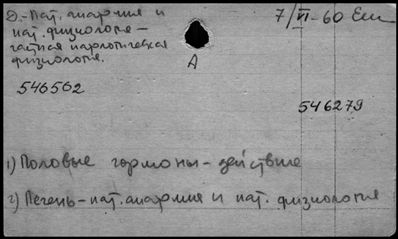 Д.-Пат. анатомия и
пат. физиология —
частная патологическая
физиология.
7/VI-60
А
546562
546279
1) Половые гормоны - действие
2) Печень - пат. анатомия и пат. физиология